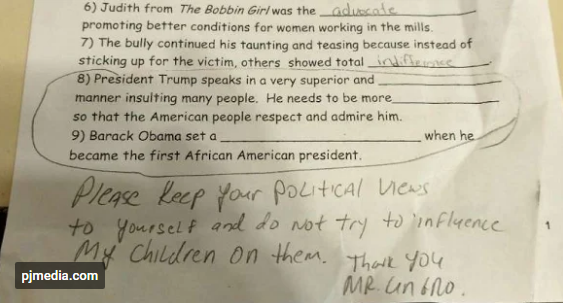 6) Judith from The Bobbin Girl was the advocate
promoting better conditions for women working in the mills.
7) The bully continued his taunting and teasing because instead of
sticking up for the victim, others showed total indifference.
8) President Trump speaks in a very superior and
manner insulting many people. He needs to be more
so that the American people respect and admire him.
9) Barack Obama set a when he
became the first African American president.
Please Keep your POLITICAL Views
to yourself and do not try to influence
My Children on them. Thank you
MR.
pjmedia.com